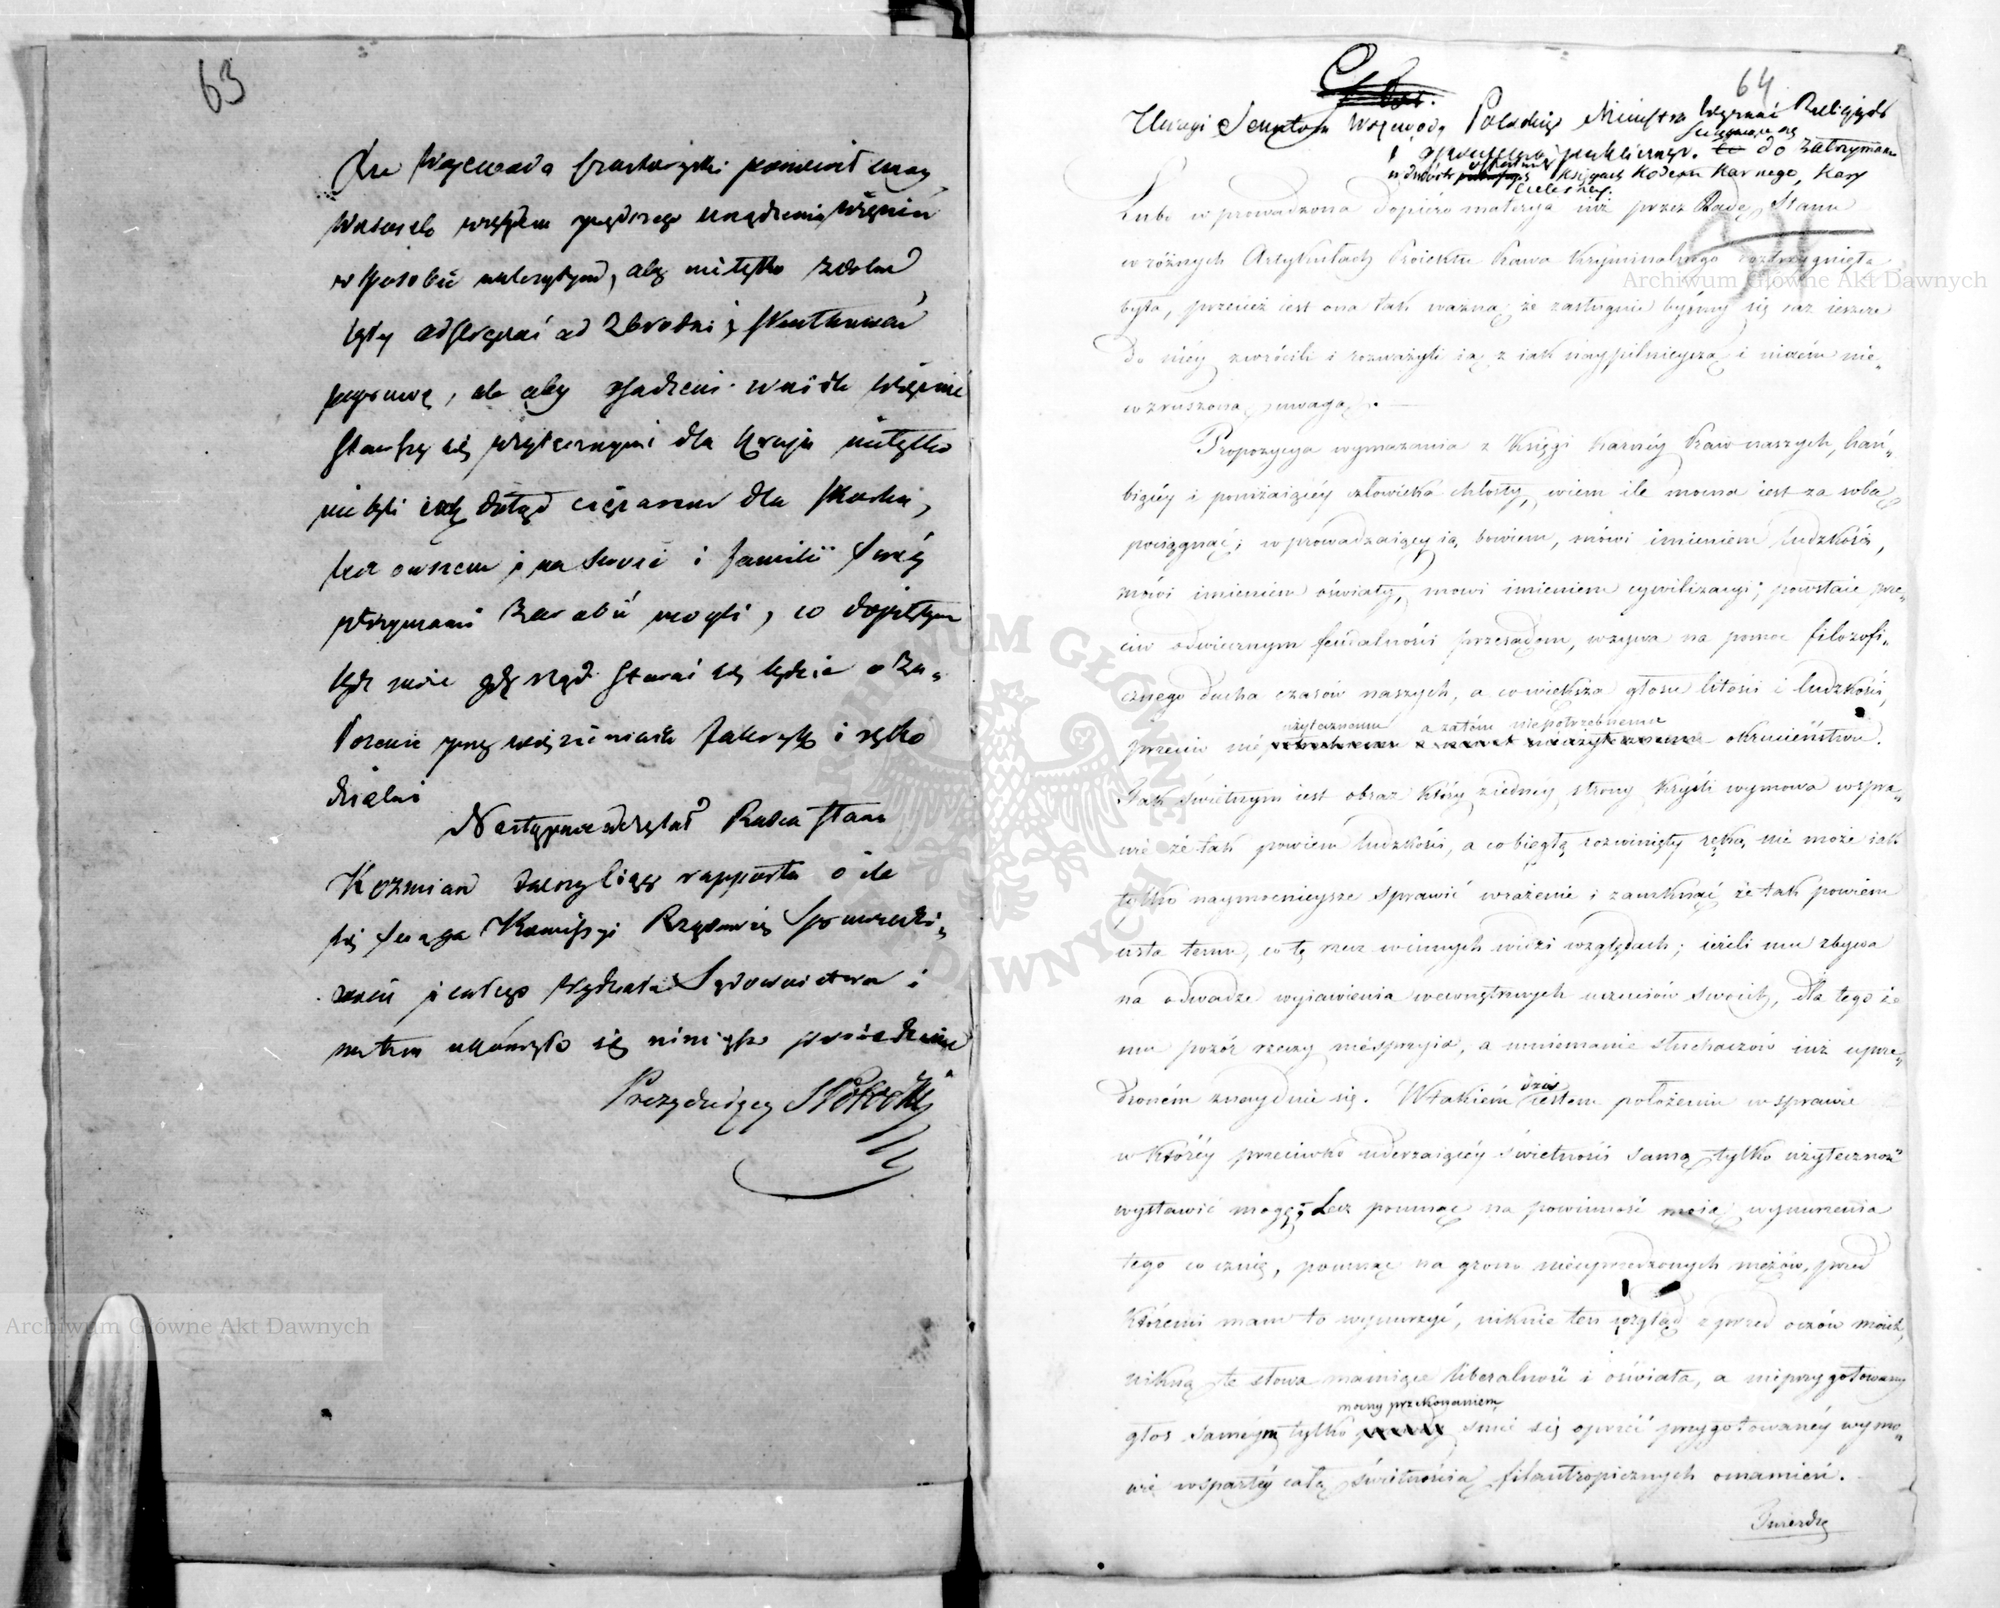 63
Xże Woiewoda Czartoryski ponowił swoy
Wniosek względem prędszego urządzenia Więzień
w sposobie należytym, aby nietylko zdolne
były odstręczać od Zbrodni i skutkować
poprawę, ale aby osadzeni w nich Więźnie
stawszy się użytecznymi dla Kraju nietylko
nie byli jak dotąd ciężarem dla Skarbu,
lecz owszem i na swoie i familii swéy
utrzymanie zarobić mogli, co
być może gdy rząd starać się będzie o za-
łożenie przy więzieniach fabryk i rękodzielni
Następnie odczytał Radca Stanu
Kozmian dalszy ciąg rapportu o ile
się ściąga Kommissyi Rządowéy Sprawiedli-
wości i całego Wydziału Sądownictwa i
na tem ukończyło się ninieysze posiedzenie
Prezyduiący S Potocki
64
Uwagi Senatora Woiewody Potockiego Ministra Wyznań Religiynych
i oświecenia publicznego. do zatrzymania
w dwóch ostatnich księgach Kodexu Karnego, Kary
cielesney.
Lubo wprowadzona dopiero materyia iuż przez Radę Stanu
w różnych Artykułach Proiektu Prawa Kryminalnego rozstrzygnięta
była, przecież iest ona tak ważna, że zasługuie byśmy się raz ieszcze
do niéy zwrócili i rozważyli ią z iak naypilnieyszą i niczém nie-
wzruszoną uwagą. —
Propozycya wymazania z Księgi Karnéy Praw naszych, hań-
biącéy i poniżaiącéy człowieka chłosty, wiem ile mocna iest za sobą
pociągnąć; wprowadzaiący ią bowiem, mówi imieniem ludzkości,
mówi imieniem oświaty, mowi imieniem cywilizacyi; powstaie prze-
ciw odwiecznym feudalności przesądom, wzywa na pomoc filozofi-
cznego ducha czasów naszych, a co większa głosu litości i ludzkości,
użytecznemu a zatém niepotrzebnemu
przeciw nie okrucieństwu.
Tak świetnym iest obraz który ziednéy strony kryśli wymowa wspra-
wie że tak powiem ludzkości, a co biegłą rozwinięty ręką nie może iak
tylko naymocnieysze sprawić wrażenie i zamknąć że tak powiem
usta temu, co tę rzecz winnych widzi względach; ieżeli mu zbywa
na odwadze wyiawienia wewnętrznych uczuciów swoich, dla tego że
mu pozór rzeczy niesprzyia, a mniemanie słuchaczów iuż uprze-
dzoném znayduie się. W takiém dziś iestem położeniu w sprawie
w któréy przeciwko uderzaiącéy świetności samą tylko użyteczność
wystawić mogę; Lecz pomnąc na powinność moią wynurzenia
tego co czuię, pomnąc na grono nieuprzedzonych mężów, przed
któremi mam to wynurzyć, niknie ten wzgląd z przed oczów moich,
nikną te słowa mamiące liberalność i oświata, a nieprzygotowany
mocny przekonaniem
głos saméy tylko śmie się oprzeć przygotowanéy wymo-
wie wspartéy całą świetnością filantropicznych omamień.
Twierdzę
Archiwum Główne Akt Dawnych
Archiwum Główne Akt Dawnych
ARCHIWUM GŁÓWNE AKT DAWNYCH